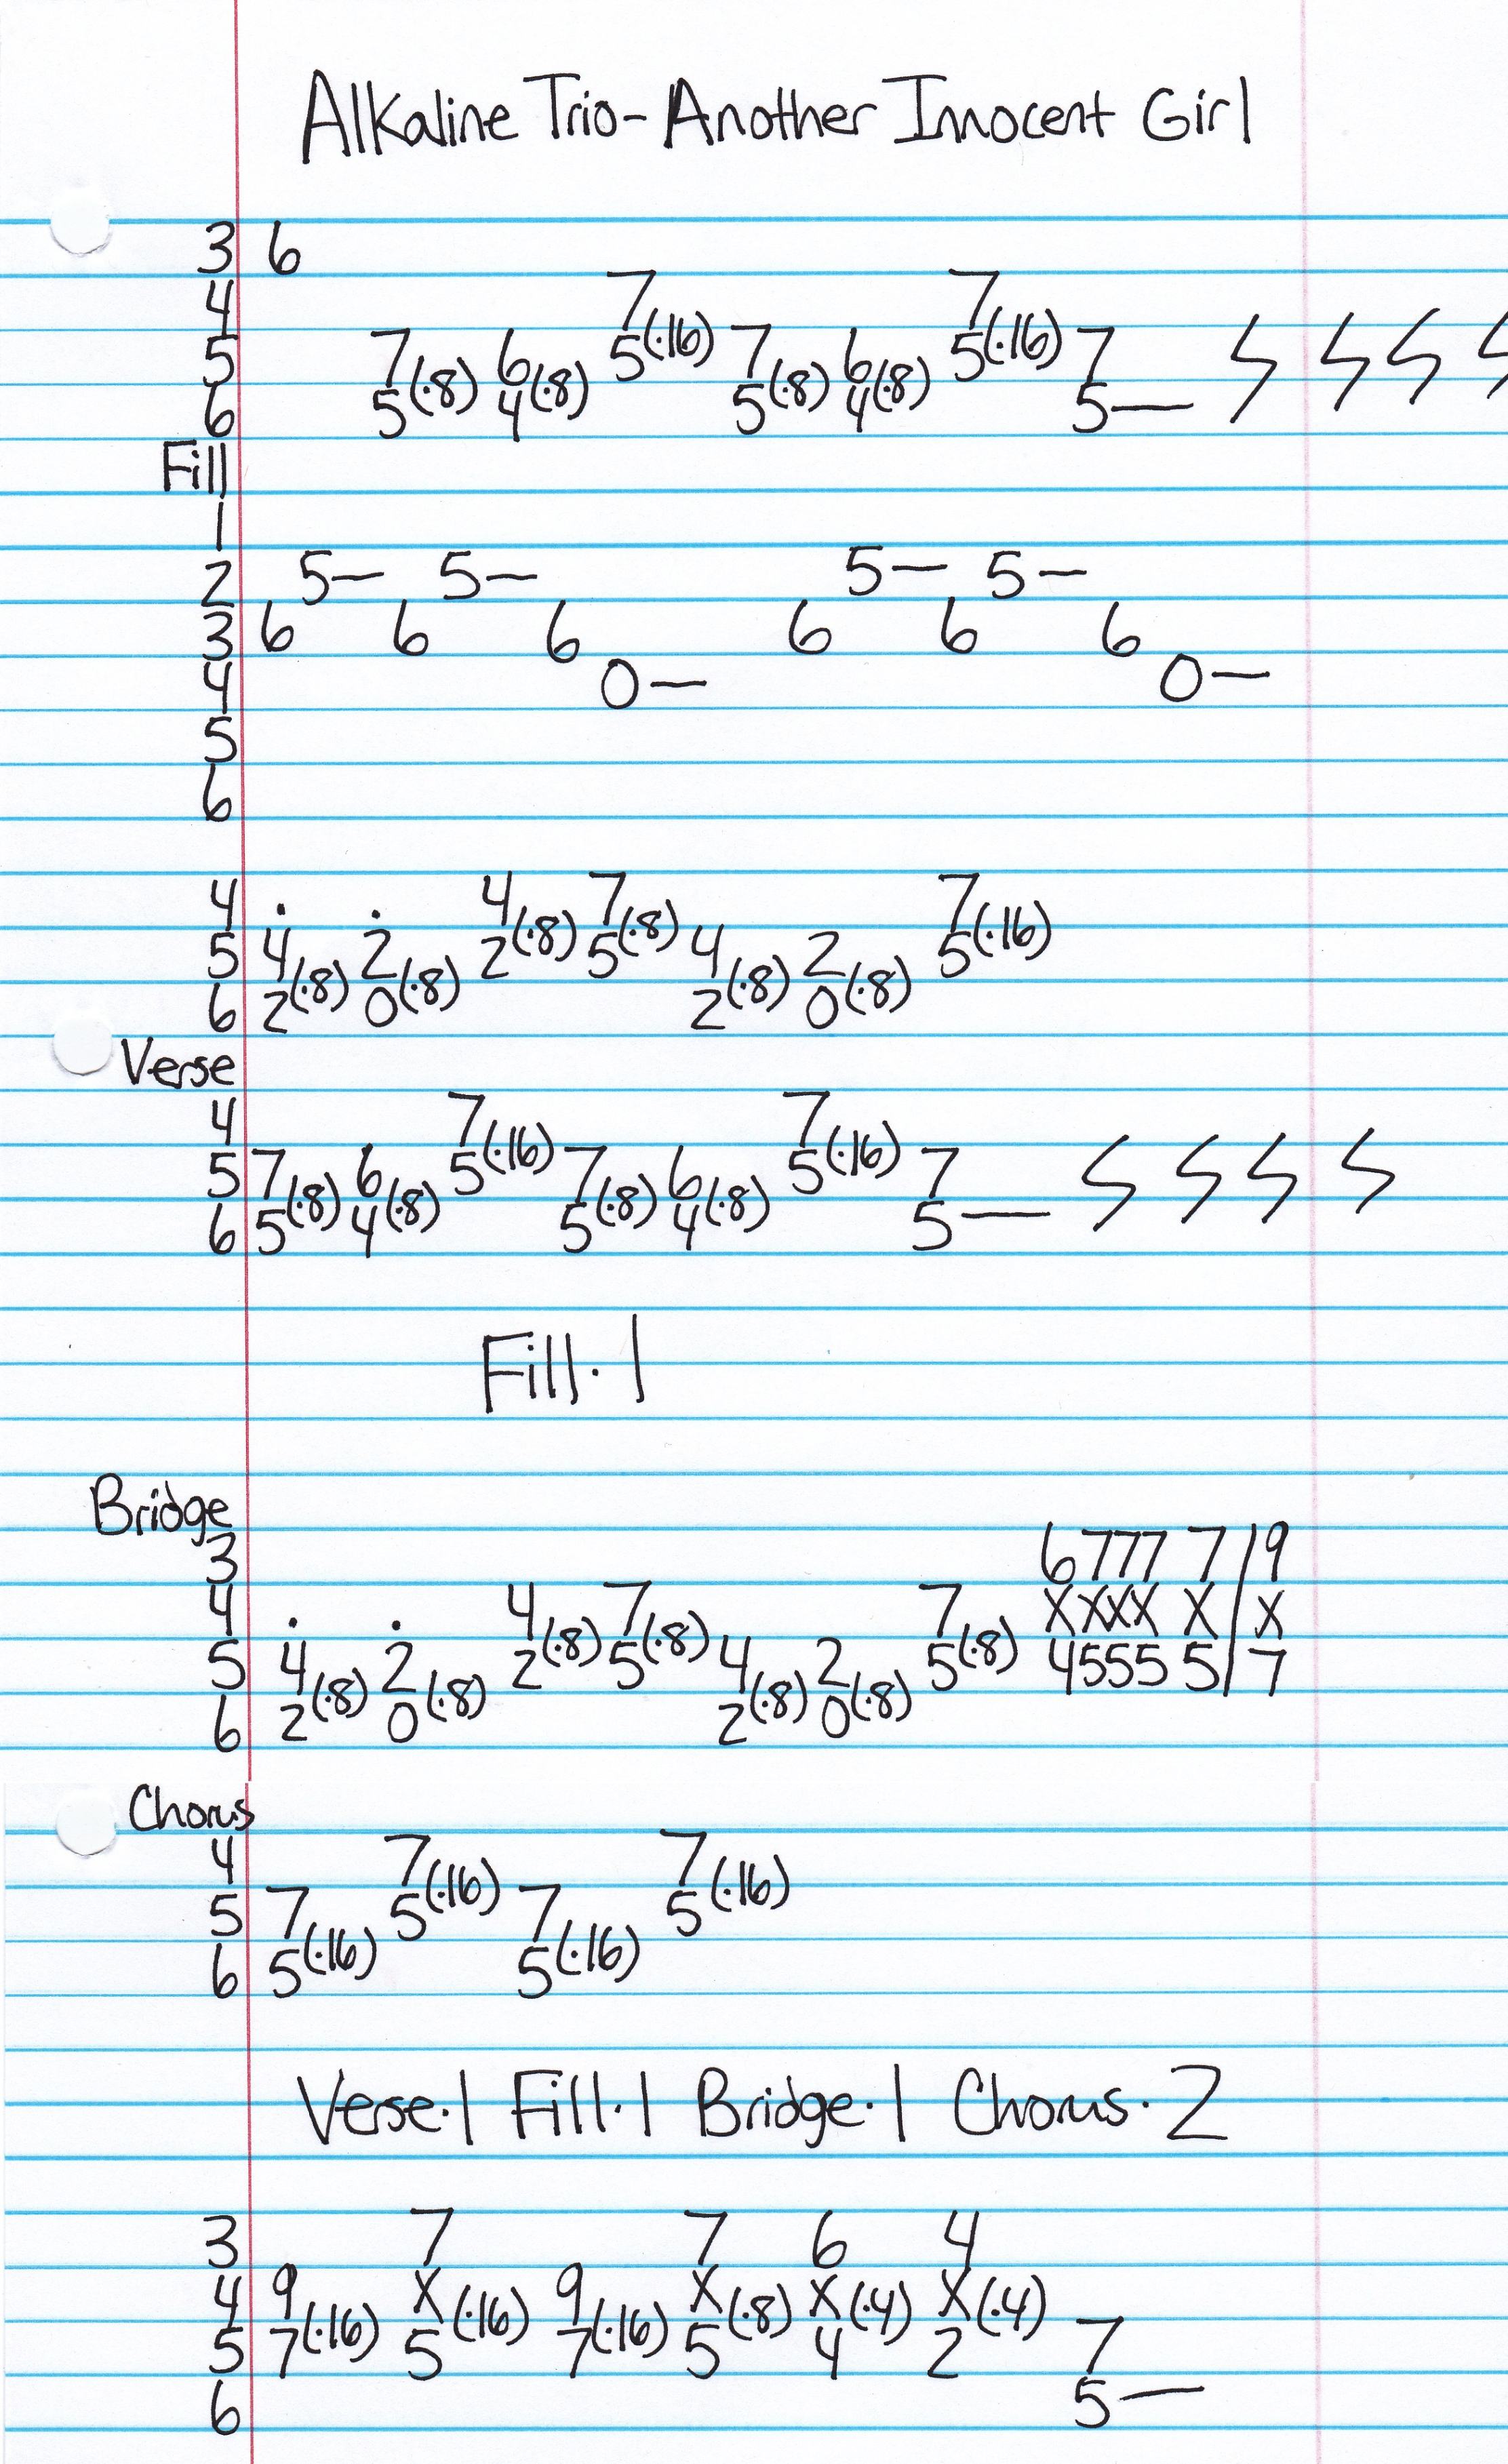 Alkaline Trio- Another Innocent Girl
3 6
4 7 7
5 7(·8) 6(·8) 5(·16) 7(·8) 6(·8) 5(·16) 7
6 5 4 5 4 5—
Fill
1
2 5— 5— 5— 5—
3 6 6 6 6 6 6
4 0— 0—
5
6
4 · · 4 7 7
5 4 2 2(·8) 5(·8) 4 2 5(·16)
6 2(·8) 0(·8) 2(·8) 0(·8)
Verse
4 7 7
5 7 6 5(·16) 7 6 5(·16) 7
6 5(·8) 4(·8) 5(·8) 4(·8) 5—
Fill·1
Bridge
3 6 7 7 7 7 / 9
4 · · 4 7 7 X X X X X / X
5 4 2 2(·8) 5(·8) 4 2 5(·8) 4 5 5 5 5 / 7
6 2(·8) 0(·8) 2(·8) 0(·8)
Chorus
4 7 7
5 7 5(·16) 7 5(·16)
6 5(·16) 5(·16)
Verse·1 Fill·1 Bridge·1 Chorus·2
3 7 7 6 4
4 9 X 9 X X X
5 7(·16) 5(·16) 7(·16) 5(·8) 4(·4) 2(·4) 7
6 5—